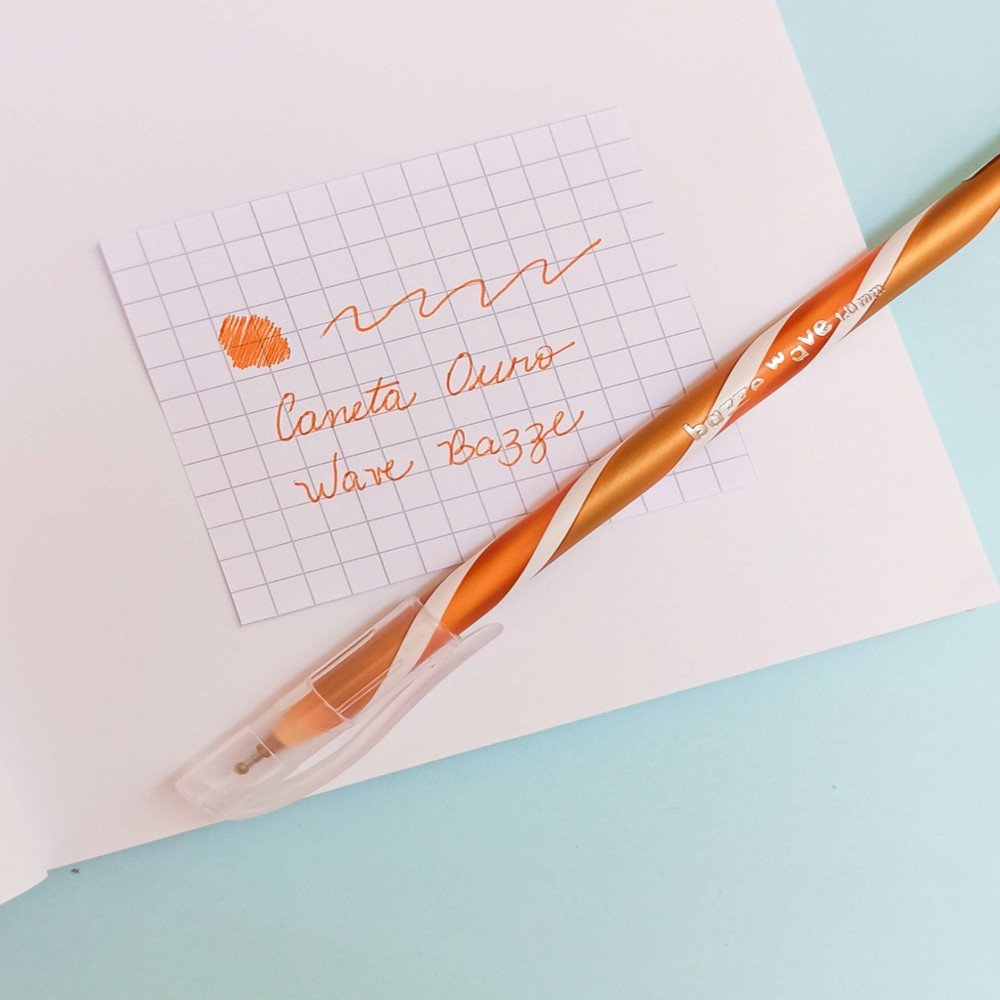 Caneta Ouro
Wave Bazze
bazze wave 1.0mm